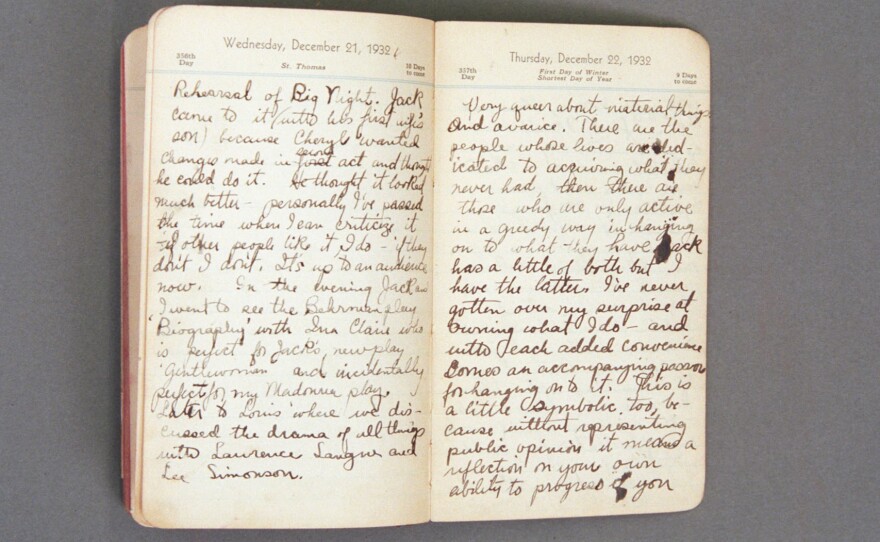 Wednesday, December 21, 1932
356th
Day
St. Thomas
10 Days
to come
Rehearsal of Big Night. Jack
came to it (with his first wife's
son) because Cheryl wanted
changes made in first act and thought
second
he could do it. He thought it looked
much better – personally I've passed
the time where I can criticize it
if other people like it, I do – if they
don't I don't. It's up to an audience
now. In the evening Jack and
I went to see the Behrman play
'Biography' with Ina Claire who
is perfect for Jack's new play
'Gentlewoman' and incidentally
perfect for my Madonna play.
Later to Louis' where we dis-
cussed the drama of all things
with Lawrence Langner and
Lee Simonson.
Thursday, December 22, 1932
357th
Day
First Day of Winter
Shortest Day of Year
9 Days
to come
Very queer about material things
and avarice. There are the
people whose lives are ded-
icated to acquiring what they
never had, then there are
those who are only active
in a greedy way in hanging
on to what they have. Jack
has a little of both but I
have the latter. I've never
gotten over my surprise at
owning what I do – and
with each added convenience
comes an accompanying
for hanging on to it. This is
a little symbolic, too, be-
cause without representing
public opinion it means a
reflection on your own
ability to progress if you